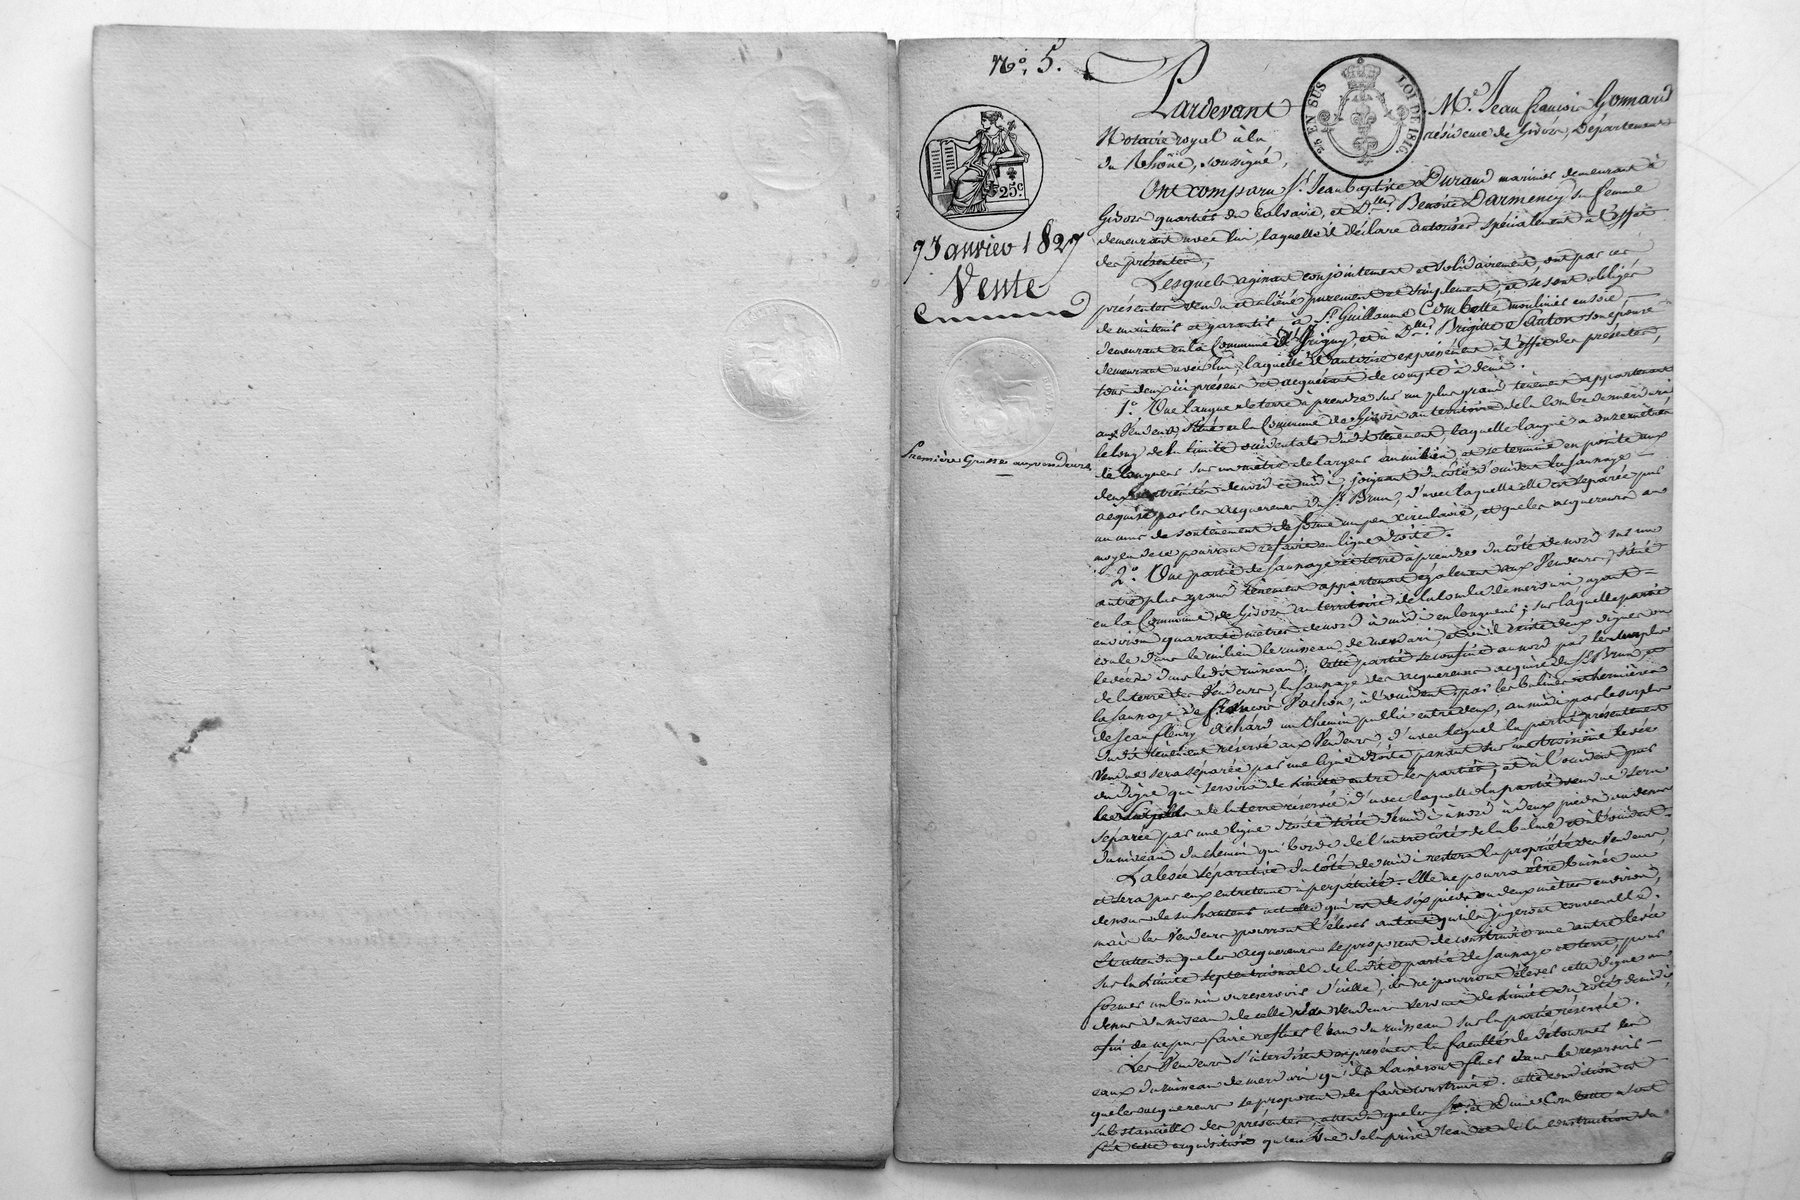 N.o 5.
25c
7 Janvier 1827
Vente
Première Grosse aux vendeurs
25 EN SUS LOI DE 1816.
Pardevant Me. Jean françois Gomard
Notaire royal à la résidence de Givors, Département
du Rhône, soussigné,
Ont comparu Sr. Jean baptiste Durand marinier demeurant à
Givors quartier du Calvaire, et Dlle. Benoite Darmency sa femme
demeurant avec lui, laquelle il déclare autoriser spécialement à l'effet
des présentes,
Lesquels agissant conjointement et solidairement, ont par ces
présentes vendu et aliéné purement et simplement, et se sont obligés
de maintenir et garantir à Sr. Guillaume Combette moulinier en soie,
demeurant en la Commune de Grigny, et à Dlle. Brigitte Santon son épouse
demeurant avec lui, laquelle il autorise expressément à l'effet des présentes,
tous deux ici présens et acquérant de compte à demi.
1.o Une langue de terre à prendre sur un plus grand tènement appartenant
aux Vendeurs situé en la Commune de Givors au territoire de la Combe de merdarí
le long de la limite occidentale dudit tènement, laquelle langue a onze mètres
de longueur sur un mètre de largeur au milieu, et se termine en pointe aux
deux extrémités de nord et midi, joignant du côté d'occident la saunage
acquise par les acquéreurs du Sr. Brun, d'avec laquelle elle est séparée par
un mur de soutènement de forme un peu circulaire, et que les acquéreurs au
moyen de ce pourront refaire en ligne droite.
2.o Une partie de saunage et terre à prendre du côté de nord sur un
autre plus grand tènement appartenant également aux Vendeurs, situé
en la Commune de Givors au territoire de la Combe de merdarí ayant
environ quarante mètres de nord à midi en longueur; sur laquelle partie
coule dans le milieu le ruisseau de merdarí, et où il existe deux digues ou
levées dans ledit ruisseau; cette partie se confine au nord par le surplus
de la terre des Vendeurs, la saunage des acquéreurs acquise du Sr. Brun et
la saunage de françois Pochon, à l'occident par les balmes et hermières
de Jean fleury Achard un chemin public entre deux, au midi par le surplus
dudit tènement réservé aux Vendeurs, d'avec lequel la partie présentement
Vendue sera séparée par une ligne droite passant sur une troisième levée
ou digue qui servira de limite entre les parties, et à l'occident par
le surplus de la terre réservée d'avec laquelle la partie vendue sera
séparée par une ligne droite tirée de midi à nord à deux pieds au dessus
du niveau du chemin qui borde de l'autre côté de la balme et l'occident.
La levée séparative du côté de midi restera la propriété des Vendeurs
et sera par eux entretenue à perpétuité. Elle ne pourra être baissée au
dessous de sa hauteur actuelle qui est de six pieds ou deux mètres environ,
mais les Vendeurs pourront l'élever autant qu'ils jugeront convenable.
Et attendu que les acquéreurs se proposent de construire une autre levée
sur la limite septentrionale de ladite partie de saunage et terre, pour
former un bassin ou réservoir d'icelle, ils ne pourront élever cette digue au
dessus du niveau de celle des Vendeurs servant de limite du côté de midi,
afin de ne pas faire refluer l'eau du ruisseau sur la partie réservée.
Les Vendeurs s'interdisent expressément la faculté de détourner les
eaux du ruisseau de merdarí qu'ils laisseront fluer dans le réservoir
que les acquéreurs se proposent de faire construire. cette condition est
substantielle des présentes, attendu que les Sr. et Dame Combette n'ont
fait cette acquisition qu'en vue de la prise d'eau et de la construction du